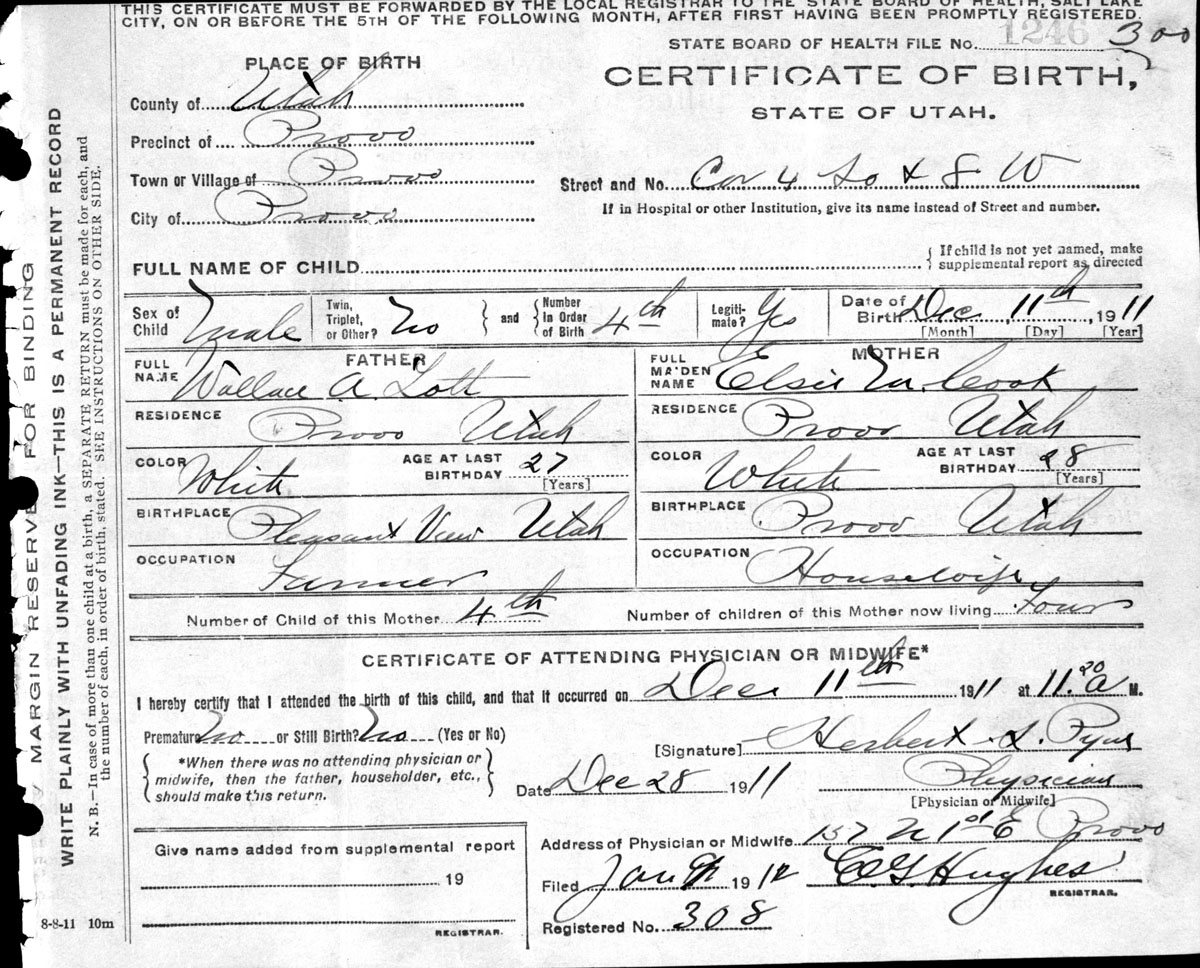 THIS CERTIFICATE MUST BE FORWARDED BY THE LOCAL REGISTRAR TO THE STATE BOARD OF HEALTH, SALT LAKE
CITY, ON OR BEFORE THE 5TH OF THE FOLLOWING MONTH, AFTER FIRST HAVING BEEN PROMPTLY REGISTERED.
STATE BOARD OF HEALTH FILE No. 1246 300
PLACE OF BIRTH
CERTIFICATE OF BIRTH,
STATE OF UTAH.
County of Utah
Precinct of Provo
Town or Village of Provo
Street and No. Cor 4 So & 8 W
City of Provo
If in Hospital or other Institution, give its name instead of Street and number.
FULL NAME OF CHILD
{ If child is not yet named, make
supplemental report as directed
Sex of Child Male
Twin, Triplet, or Other? No } and { Number in Order of Birth 4th
Legiti-mate? Yes
Date of Birth Dec 11th, 1911
[Month] [Day] [Year]
FATHER
FULL NAME Wallace A. Lott
RESIDENCE Provo Utah
COLOR White AGE AT LAST BIRTHDAY 27 [Years]
BIRTHPLACE Pleasant View Utah
OCCUPATION Farmer
MOTHER
FULL MAIDEN NAME Elsie M. Cook
RESIDENCE Provo Utah
COLOR White AGE AT LAST BIRTHDAY 28 [Years]
BIRTHPLACE Provo Utah
OCCUPATION Housewife
Number of Child of this Mother 4th Number of children of this Mother now living Four
CERTIFICATE OF ATTENDING PHYSICIAN OR MIDWIFE*
I hereby certify that I attended the birth of this child, and that it occurred on Dec 11th 1911 at 11.20 a M.
Premature No or Still Birth? No (Yes or No)
{ *When there was no attending physician or
midwife, then the father, householder, etc.,
should make this return. }
[Signature] Herbert S. Pyne
Date Dec 28 1911 Physician
[Physician or Midwife]
Address of Physician or Midwife 137 N 1st E Provo
Filed Jan 9th 1912 C.G. Hughes
REGISTRAR.
Registered No. 308
Give name added from supplemental report
19
REGISTRAR.
8-8-11 10m
MARGIN RESERVED FOR BINDING
WRITE PLAINLY WITH UNFADING INK—THIS IS A PERMANENT RECORD
N. B.—In case of more than one child at a birth, a SEPARATE RETURN must be made for each, and
the number of each, in order of birth, stated. SEE INSTRUCTIONS ON OTHER SIDE.